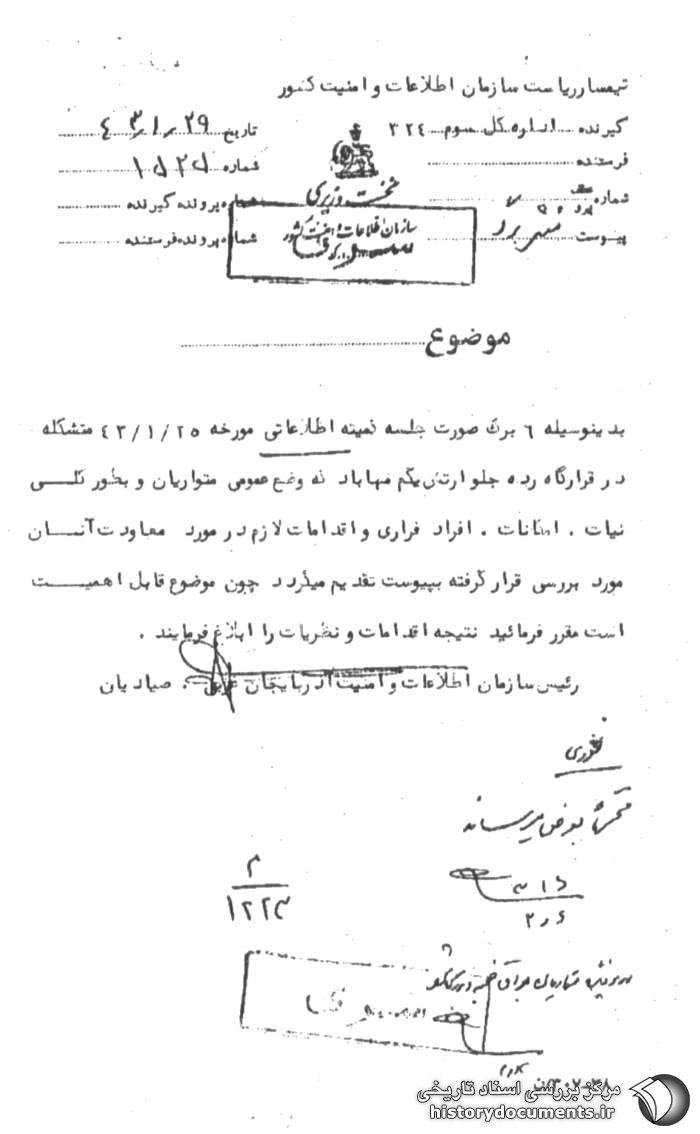 تیمسار ریاست سازمان اطلاعات و امنیت کشور
گیرنده اداره کل سوم ۳۲٤
تاریخ ۲۹
فرستنده
شماره
شماره
پیوست
نخست وزیری
شماره پرونده گیرنده
شماره پرونده فرستنده
سازمان اطلاعات و امنیت کشور
موضوع
بدینوسیله ٦ برگ صورت جلسه کمیته اطلاعاتی مورخه ٤۳/۱/۲۵ متشکله
در قرارگاه رده جلو ارتش یکم مهاباد که وضع عمومی متواریان و بطور کلی
نیات . امکانات . افراد فراری و اقدامات لازم در مورد معاودت آنان
مورد بررسی قرار گرفته بپیوست تقدیم میگردد چون موضوع قابل اهمیت
است مقرر فرمائید نتیجه اقدامات و نظریات را ابلاغ فرمایند .
رئیس سازمان اطلاعات و امنیت آذربایجان غربی . صیادیان
فوری
محترماً بعرض میرساند
مرکز بررسی اسناد تاریخی
historydocuments.ir